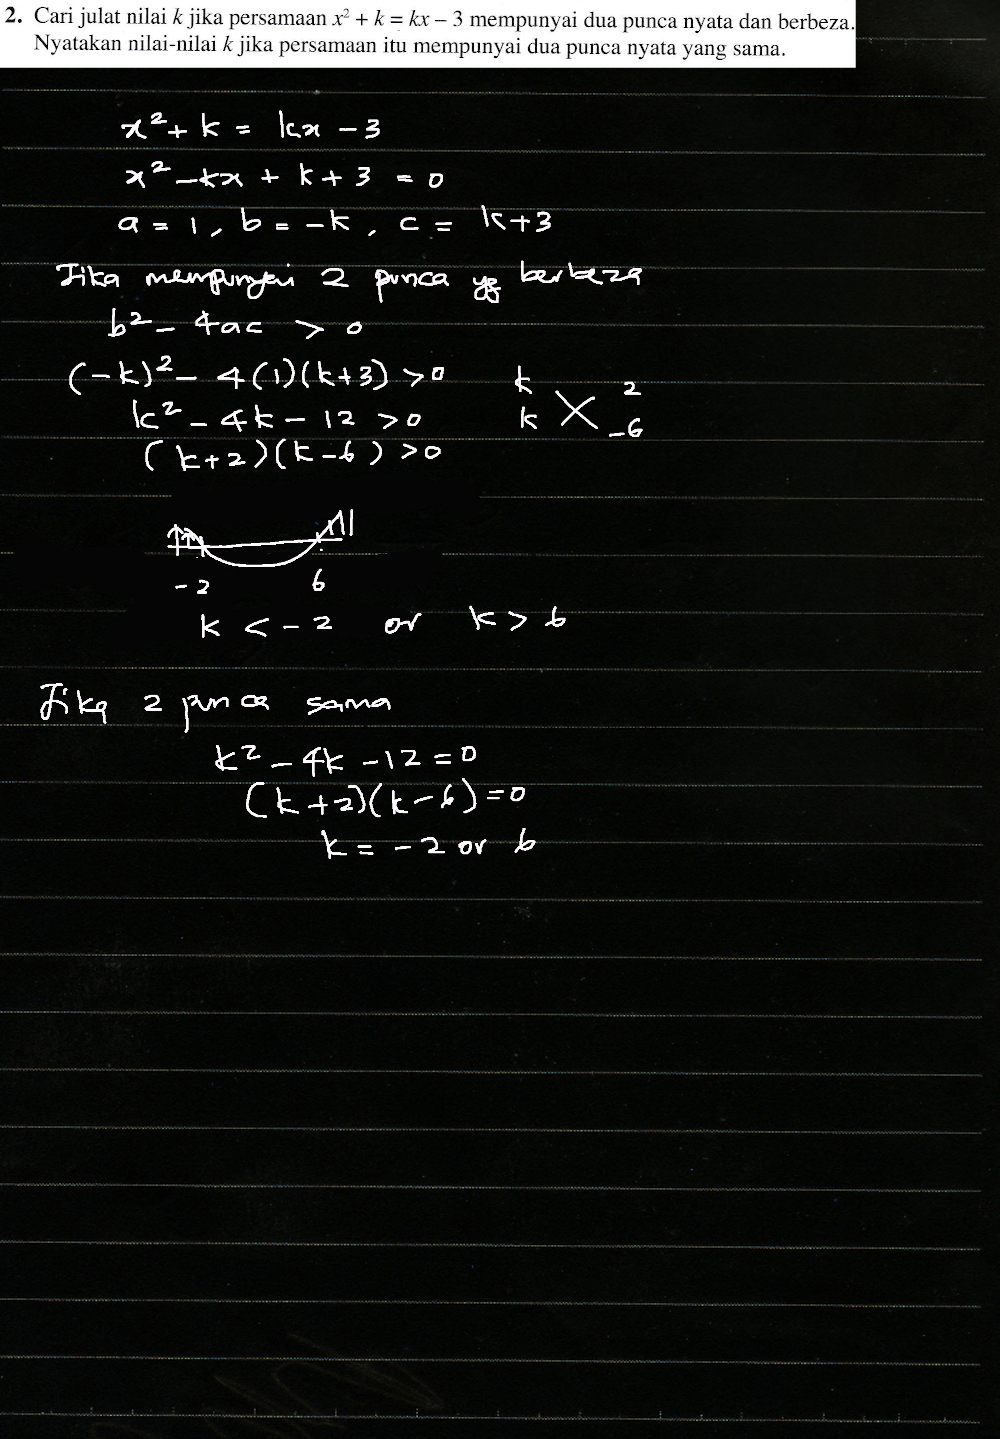 2. Cari julat nilai k jika persamaan x² + k = kx – 3 mempunyai dua punca nyata dan berbeza.
Nyatakan nilai-nilai k jika persamaan itu mempunyai dua punca nyata yang sama.
x² + k = kx – 3
x² – kx + k + 3 = 0
a = 1, b = –k, c = k+3
Jika mempunyai 2 punca yg berbeza
b² – 4ac > 0
(–k)² – 4(1)(k+3) > 0
k 2
k² – 4k – 12 > 0
k –6
(k+2)(k–6) > 0
–2 6
k < –2 or k > 6
Jika 2 punca sama
k² – 4k – 12 = 0
(k+2)(k–6) = 0
k = –2 or 6